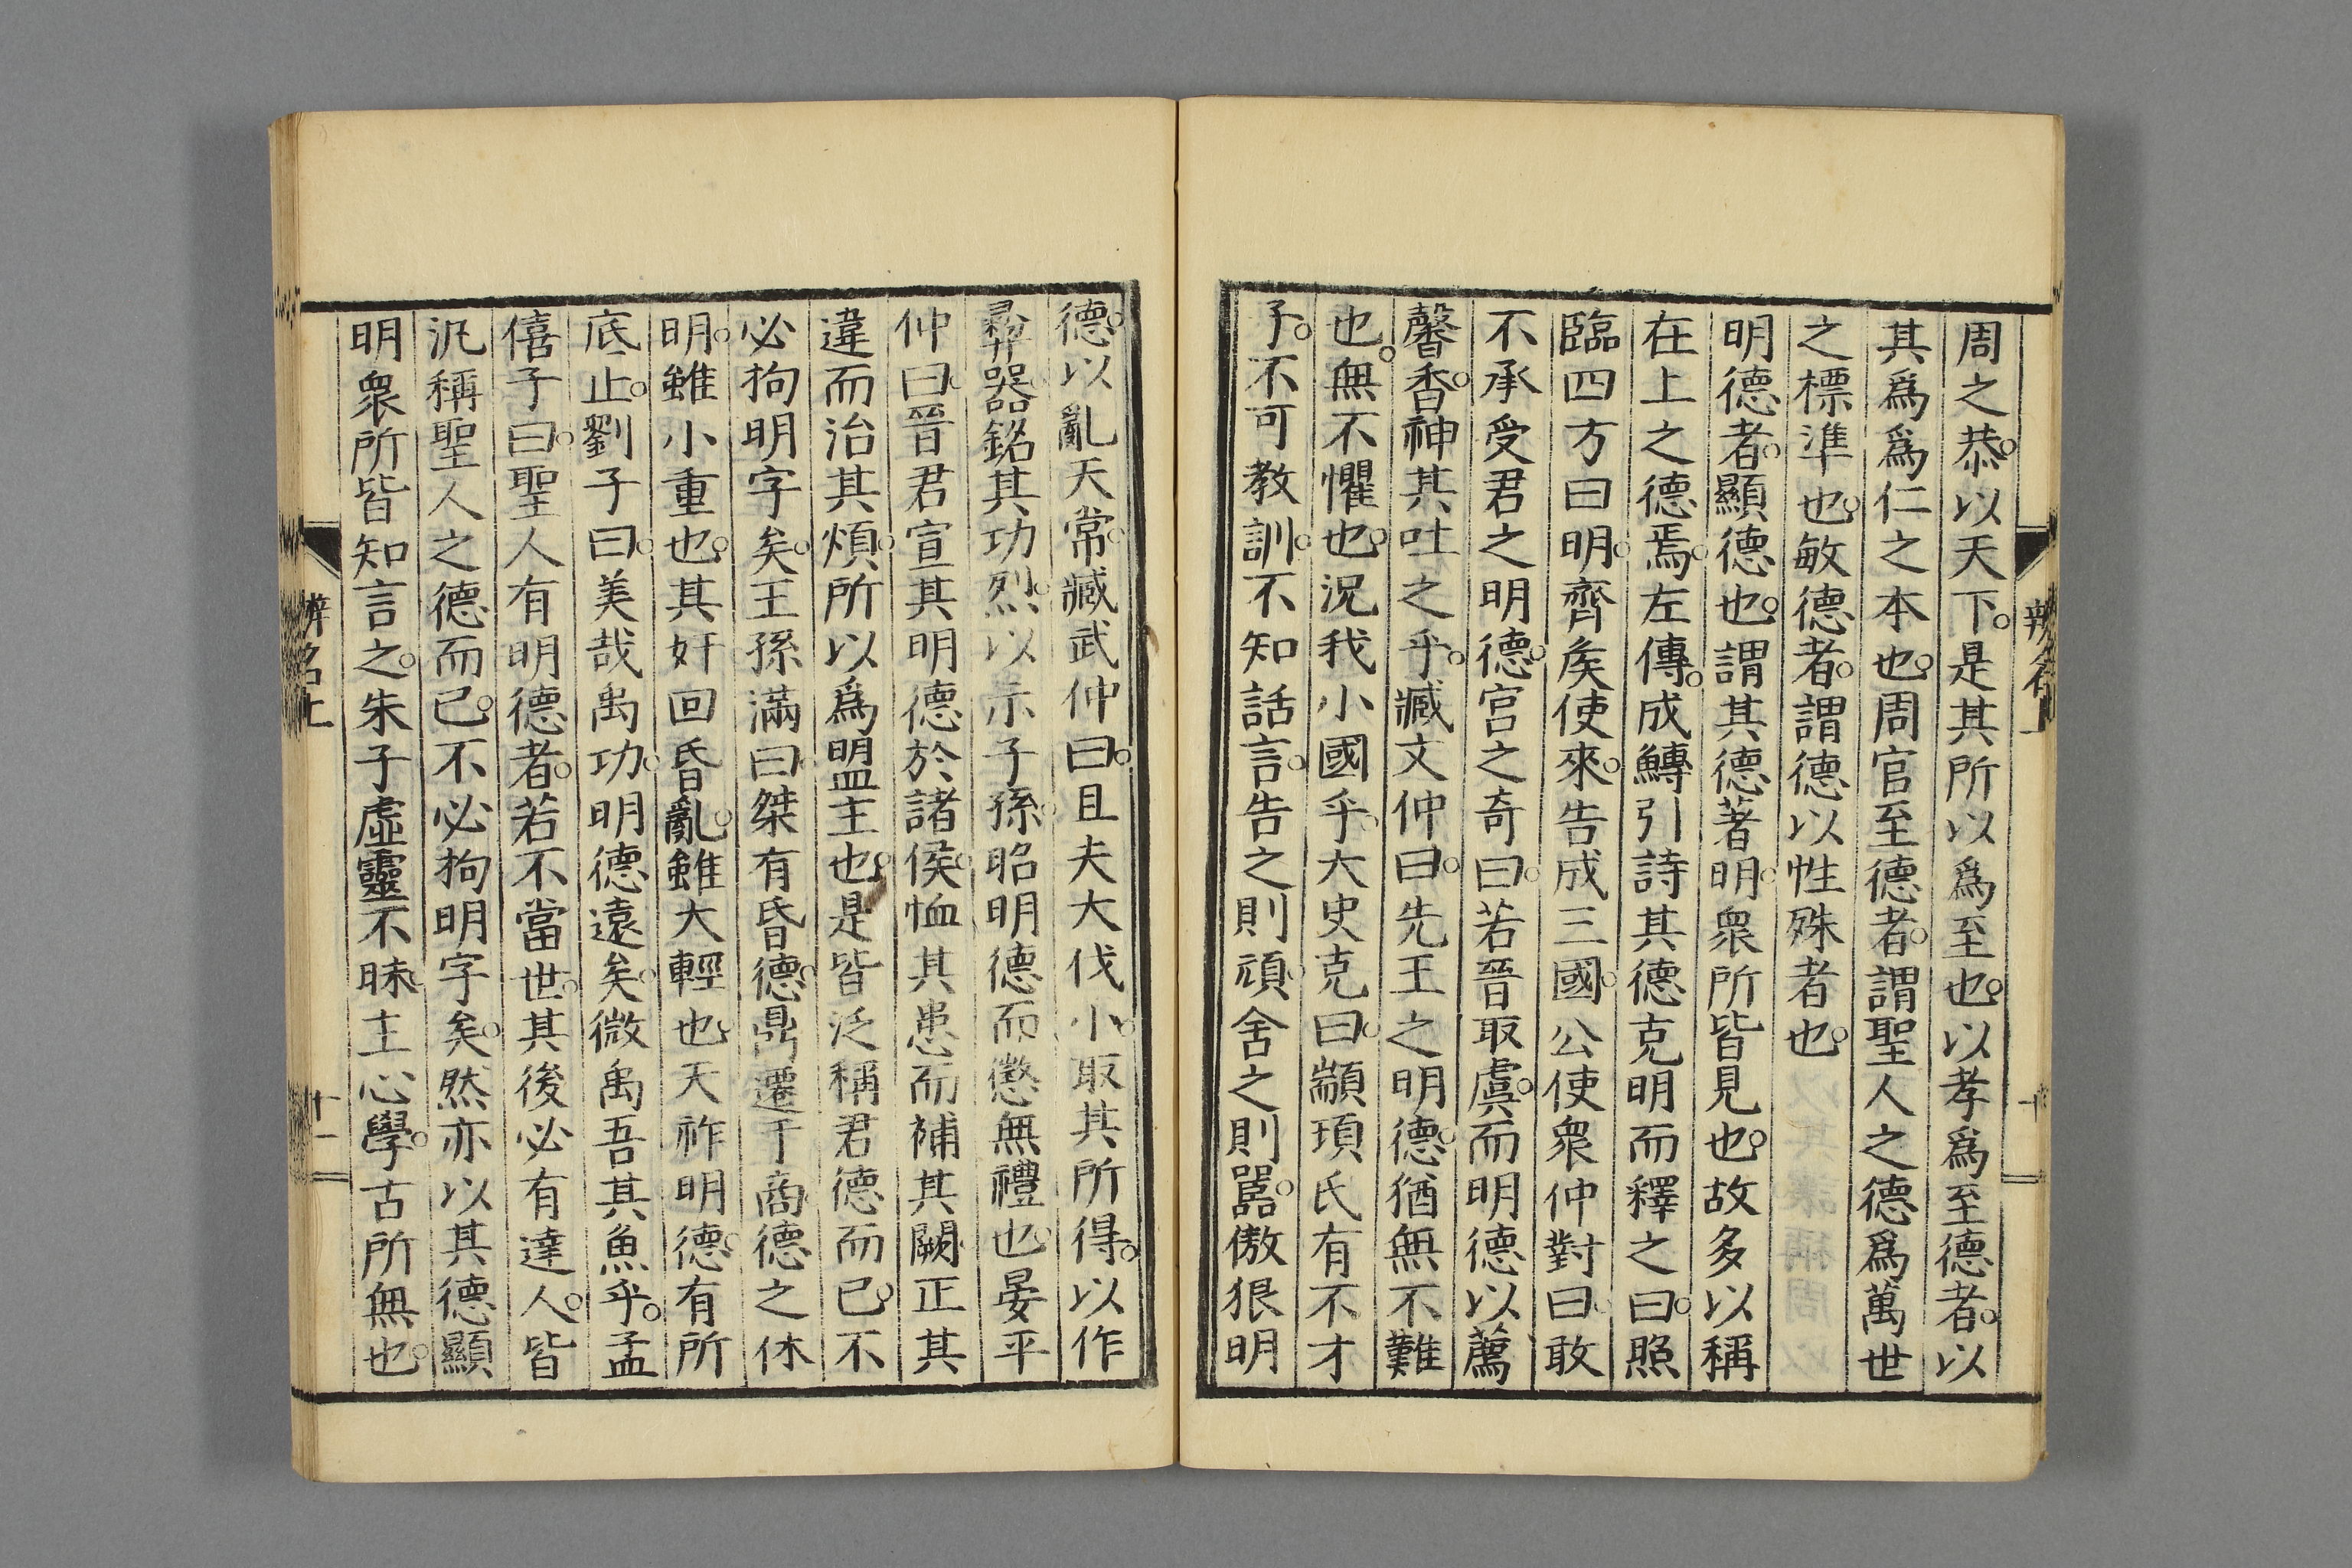 周之恭。以天下。是其所以爲至也。以孝爲至德者。以
其爲爲仁之本也。周官至德者。謂聖人之德爲萬世
之標準也。敏德者。謂德以性殊者也。
明德者。顯德也。謂其德著明。衆所皆見也。故多以稱
在上之德焉。左傳。成鱄引詩其德克明而釋之曰。照
臨四方曰明。齊矦使來。告成三國。公使衆仲對曰。敢
不承受君之明德。宮之奇曰。若晉取虞。而明德以薦
馨香。神其吐之乎。臧文仲曰。先王之明德。猶無不難
也。無不懼也。況我小國乎。大史克曰。顓頊氏有不才
子。不可教訓。不知話言。告之則頑。舍之則嚚。傲狠明
德。以亂天常。臧武仲曰。且夫大伐小。取其所得。以作
彛器。銘其功烈。以示子孫。昭明德而懲無禮也。晏平
仲曰。晉君宣其明德於諸侯。恤其患而補其闕。正其
違而治其煩。所以爲盟主也。是皆泛稱君德而已。不
必拘明字矣。王孫滿曰。桀有昏德。鼎遷于商。德之休
明。雖小重也。其奸回昏亂。雖大輕也。天祚明德。有所
底止。劉子曰。美哉禹功。明德遠矣。微禹吾其魚乎。孟
僖子曰。聖人有明德者。若不當世。其後必有達人。皆
汎稱聖人之德而已。不必拘明字矣。然亦以其德顯
明衆所皆知言之。朱子虛靈不昧。主心學。古所無也。
辨名上
十一